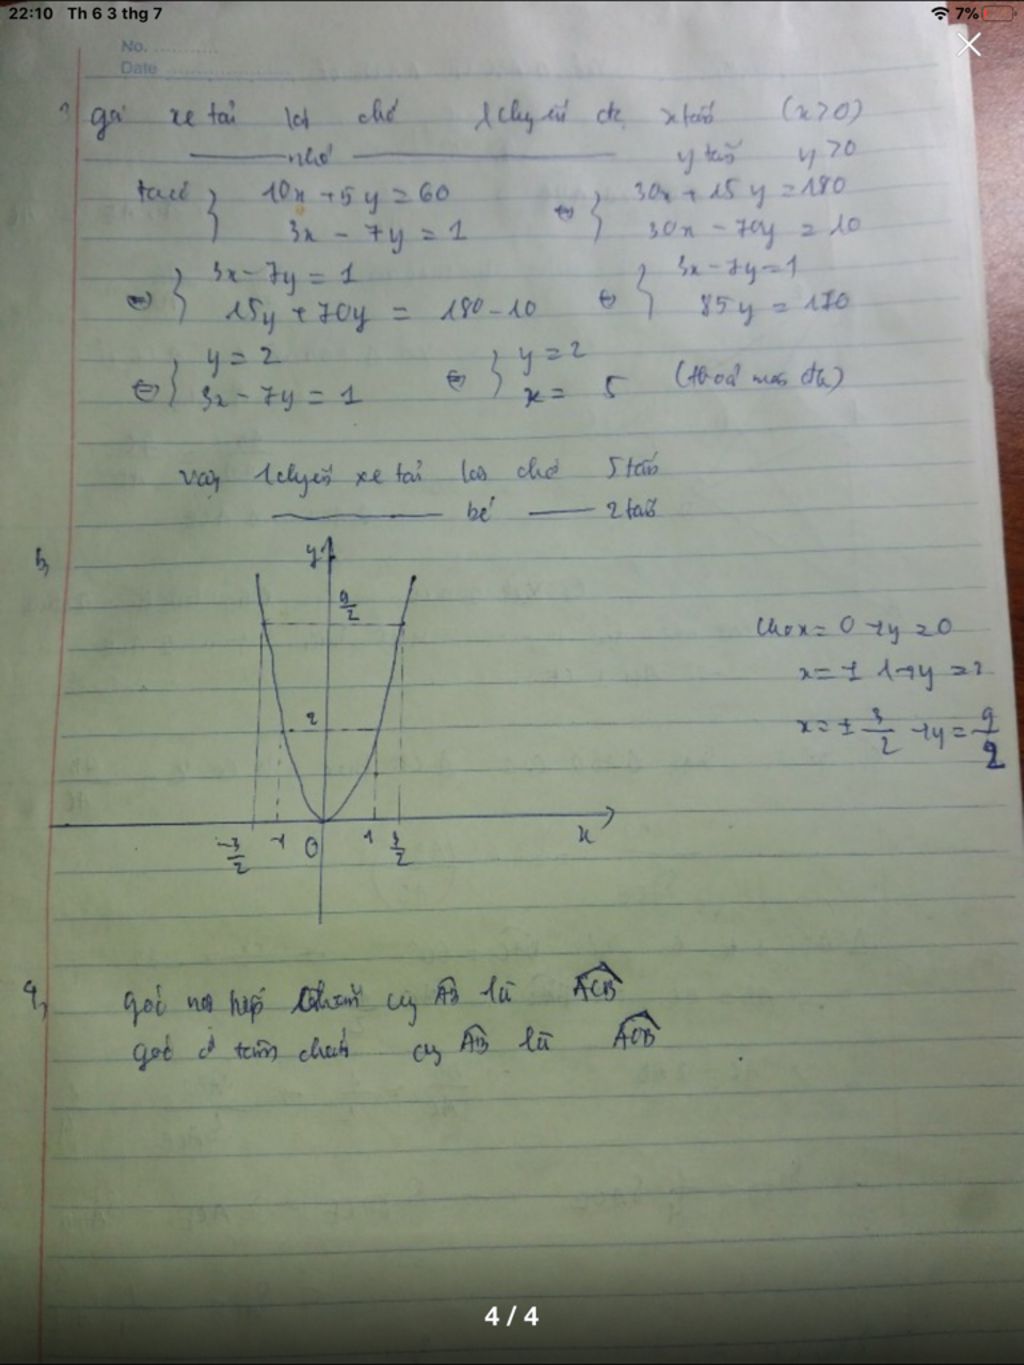 22:10 Th 6 3 thg 7
7%
No.
Date
xe tải chở x tấn (x>0)
nhỏ y tấn y>0
ta có { 10x + 5y = 60
3x - 7y = 1
⇔ { 30x + 15y = 180
30x - 70y = 10
⇔ { 3x - 7y = 1
15y + 70y = 180 - 10
⇔ { 3x - 7y = 1
85y = 170
⇔ { y = 2
3x - 7y = 1
⇔ { y = 2
x = 5
(thoả mãn đk)
Vậy 1 chuyến xe tải lớn chở 5 tấn
bé 2 tấn
b,
y
9/2
2
-3/2 -1 0 1 3/2 x
Cho x = 0 → y = 0
x = ± 1 → y = 2
x = ± 3/2 → y = 9/2
4,
góc nội tiếp chắn cung AB là ACB
góc ở tâm chắn cung AB là AOB
4 / 4